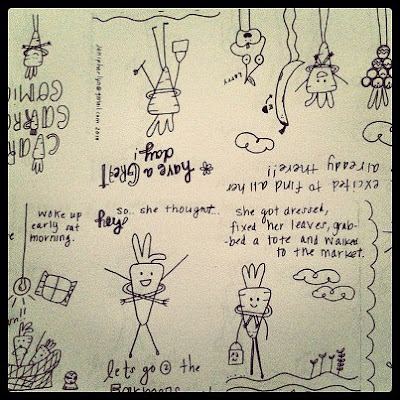 excited to find all her
already there!!
Larry
have a GREAT
day!
woke up
early sat
morning.
hey
so.. she thought...
let's go 2 the
she got dressed,
fixed her leaves, grab-
-bed a tote and walked
to the market.